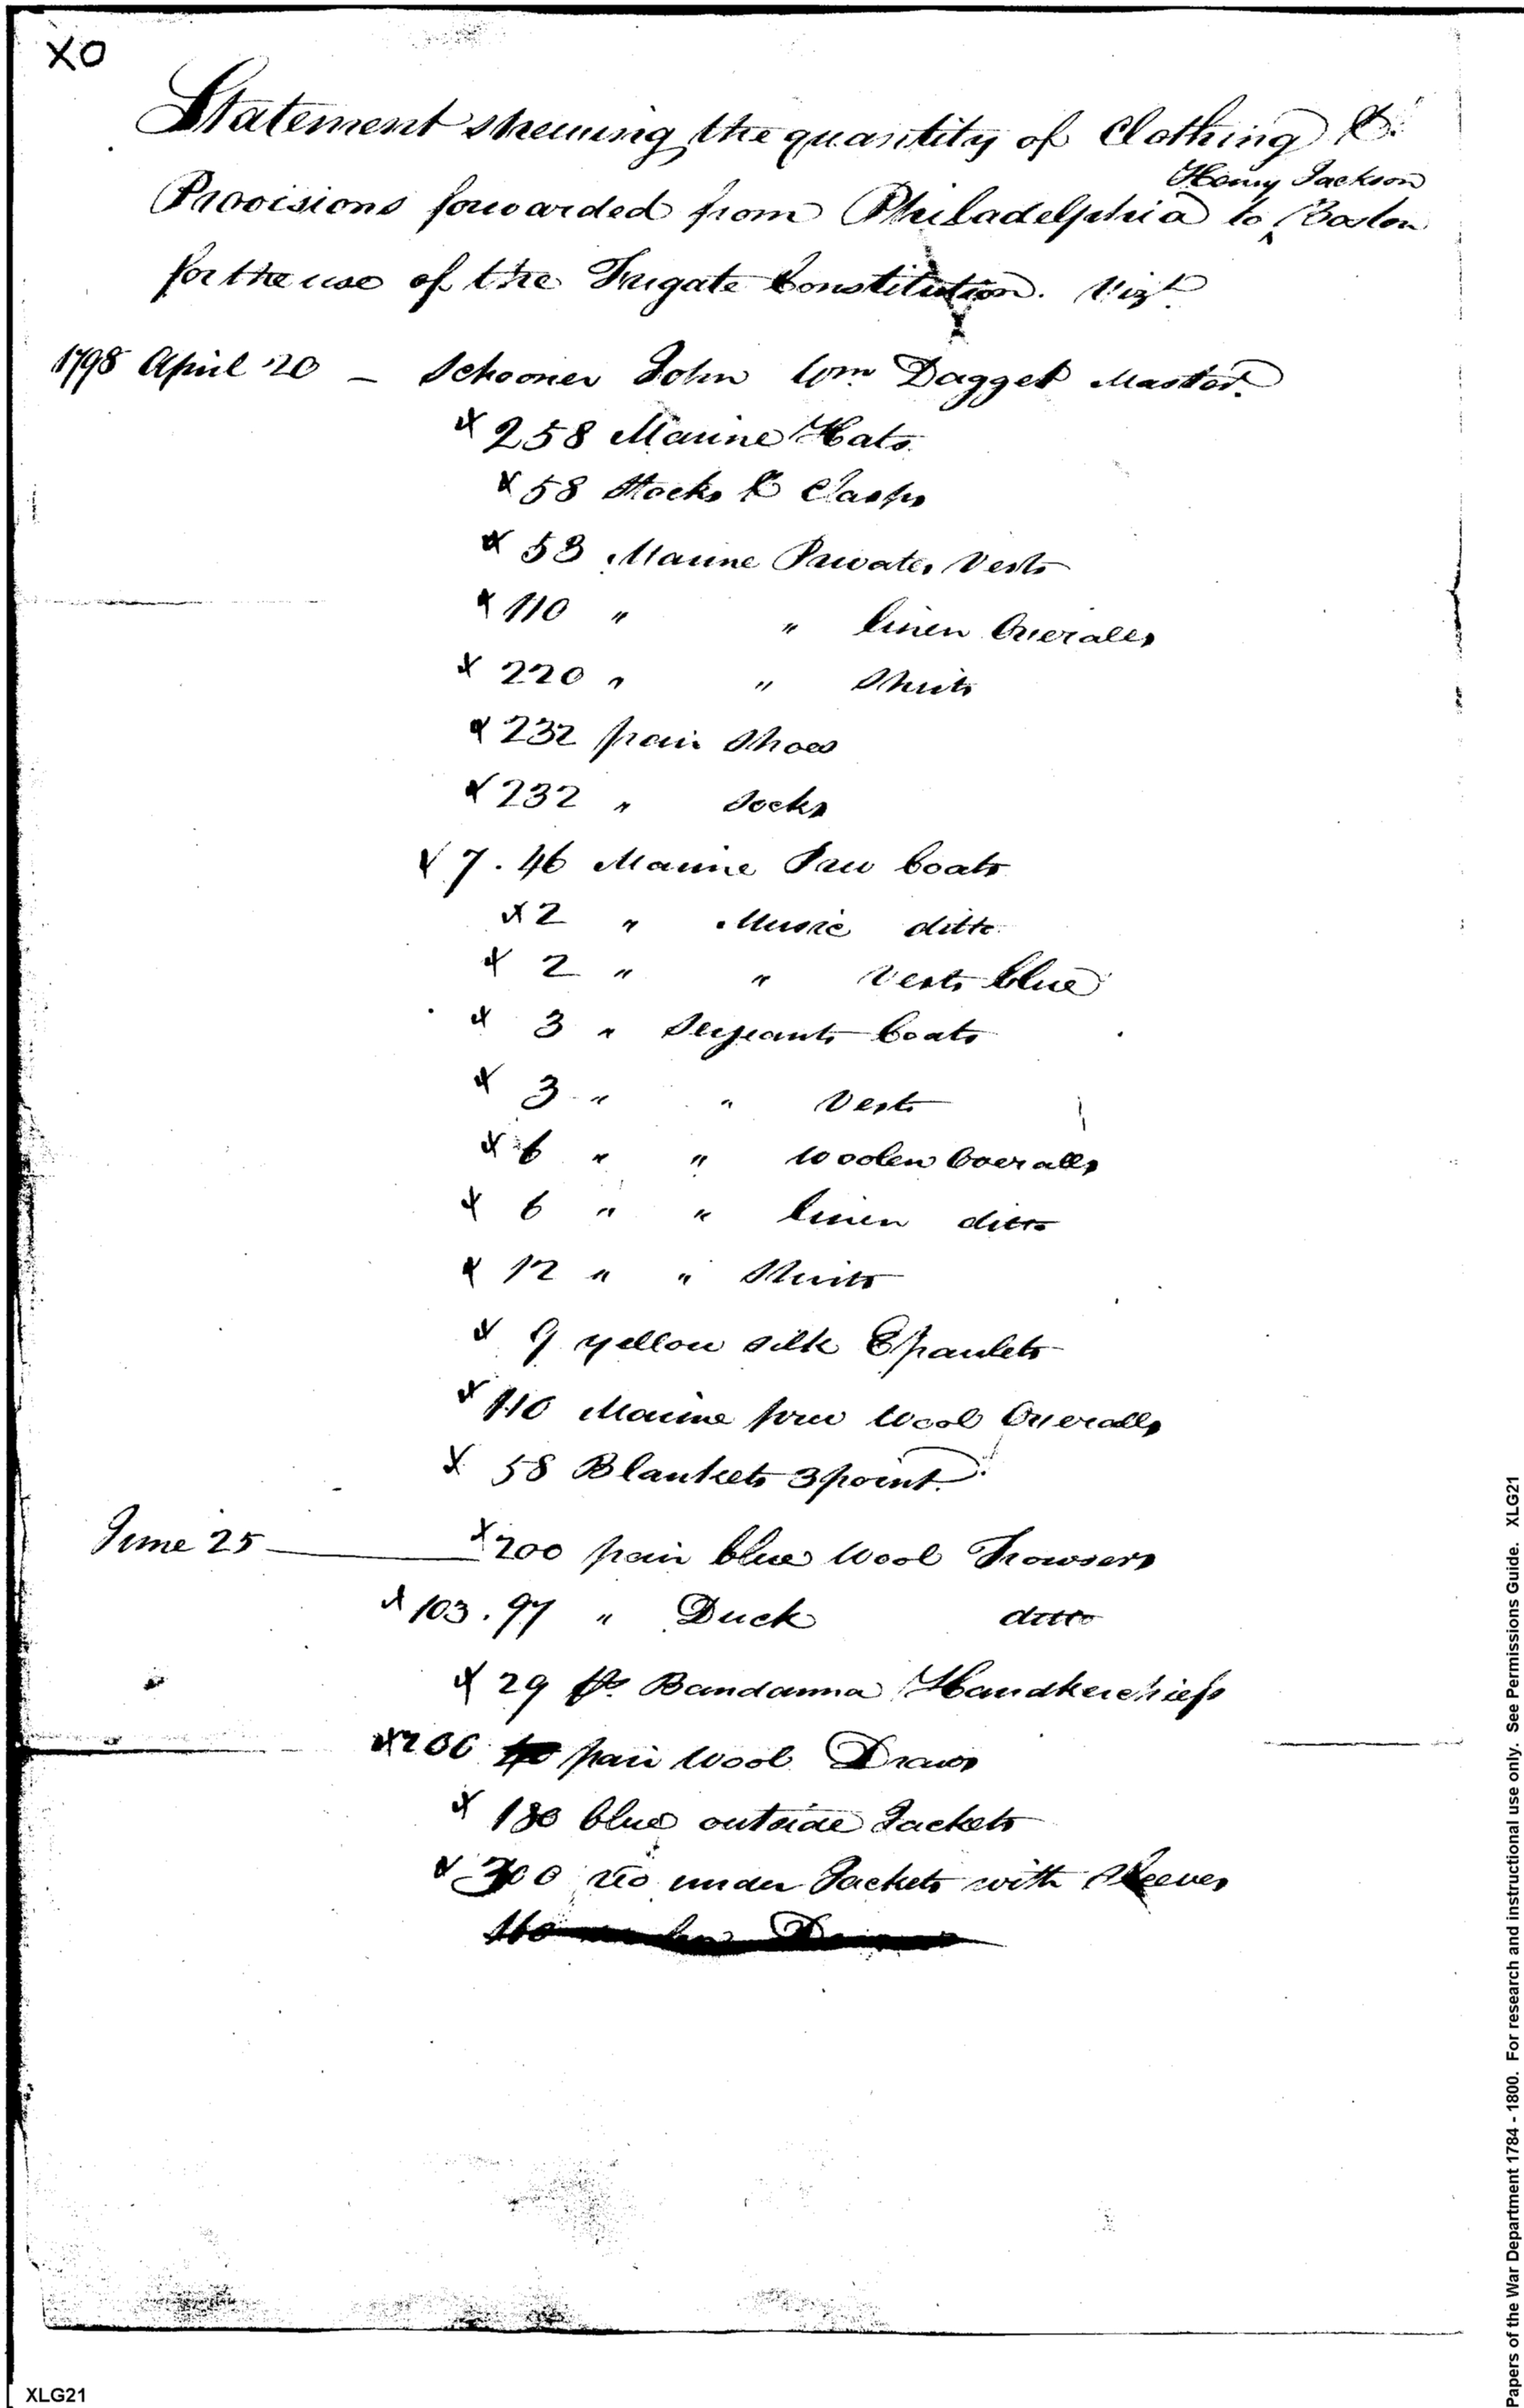 XO
Statement shewing the quantity of Clothing &
Henry Jackson
Provisions forwarded from Philadelphia to ^ Boston
for the use of the Frigate Constitution. Vizt
1798 April 20 – Schooner John Wm Dagget Master.
x 258 Marine Hats
x 58 Stocks & Clasps
x 53 Marine Privates Vests
x 110 " " linen Overalls
x 220 " " Shirts
x 232 pair Shoes
x 232 " Socks
x 7 . 46 Marine Priv Coats
x 2 " Music ditto
x 2 " " Vests blue
x 3 " Serjeants Coats
x 3 " " Vests
x 6 " " woolen Overalls
x 6 " " linen ditto
x 12 " " Shirts
x 9 yellow silk Epaulets
x 110 Marine priv Wool Overalls
x 58 Blankets 3 point.
June 25 x 200 pair blue Wool Trowsers
x 103 . 97 " Duck ditto
x 29 ps. Bandanna Handkerchiefs
x 200 pair Wool Draws
x 180 blue outside Jackets
x 300 do under Jackets with Sleeves
160
XLG21
Papers of the War Department 1784 - 1800. For research and instructional use only. See Permissions Guide. XLG21